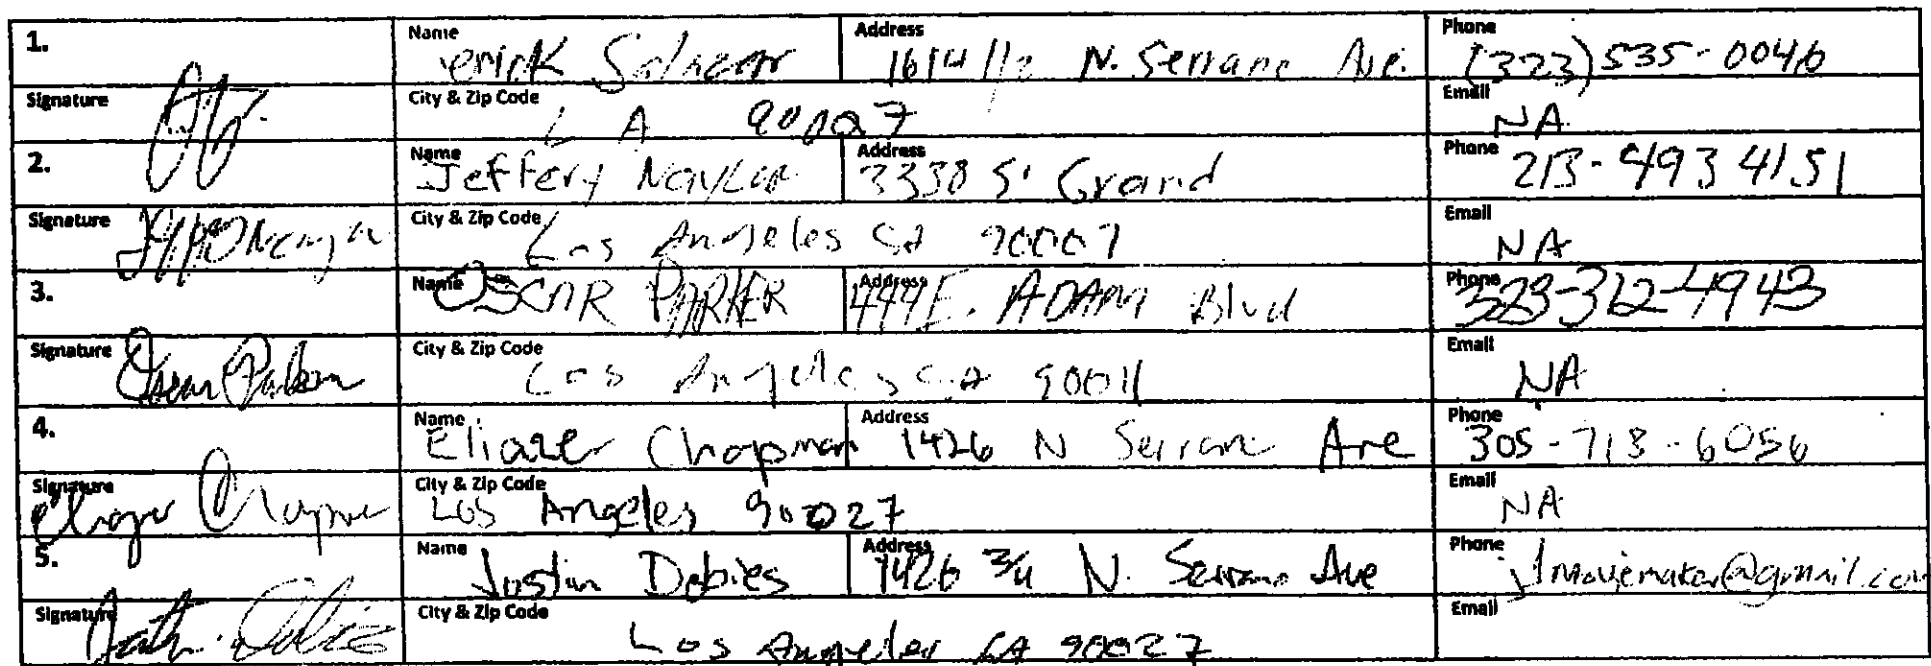 1. Name erick Salazar Address 1614 1/2 N. Serrano Ave. Phone (323) 535-0046
Signature City & Zip Code LA 90027 Email NA
2. Name Jeffery Naylor Address 3338 S. Grand Phone 213-493 4151
Signature City & Zip Code Los Angeles CA 90007 Email NA
3. Name OSCAR PARKER Address 444 E. ADAM Blvd Phone 323-312-4943
Signature Oscar Parker City & Zip Code Los Angeles CA 90011 Email NA
4. Name Eliazer Chapman Address 1426 N Serrano Ave Phone 305-713-6056
Signature City & Zip Code Los Angeles 90027 Email NA
5. Name Justin Debies Address 1426 3/4 N. Serrano Ave Phone J1moviemaker@gmail.com
Signature City & Zip Code Los Angeles CA 90027 Email